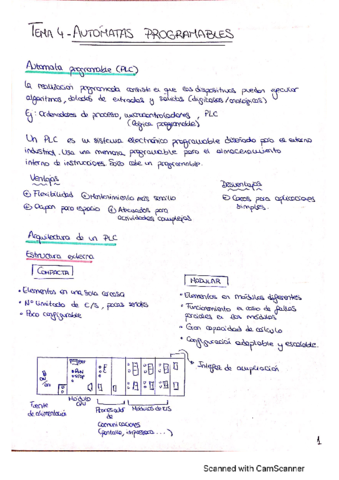 TEMA 4 - AUTÓMATAS PROGRAMABLES
Autómata programable (PLC)
La resolución programada consiste en que los dispositivos pueden ejecutar
algoritmos, dotados de entradas y salidas (digitales/analógicas)
Ej: Ordenadores de proceso, microcontroladores, PLC
(lógica programable)
Un PLC es un sistema electrónico programable diseñado para el entorno
industrial. Usa una memoria programable para el almacenamiento
interno de instrucciones.
Ventajas
Desventajas
Flexibilidad
Mantenimiento más sencillo
Caros para aplicaciones
simples.
espacio
Adecuados para
actividades complejas
Arquitectura de un PLC
Estructura externa
COMPACTA
MODULAR
• Elementos en una sola carcasa
• Nº limitado de E/S, pocas señales
• Poco configurable
• Elementos en módulos diferentes
• Funcionamiento en caso de fallos
parciales en los módulos
• Gran capacidad de cálculo
• Configuración adaptable y escalable.
de ampliación
Fuente
de alimentación
Módulo
CPU
Procesador
de
comunicaciones
(pantalla, impresora...)
Módulos de E/S
1
Scanned with CamScanner